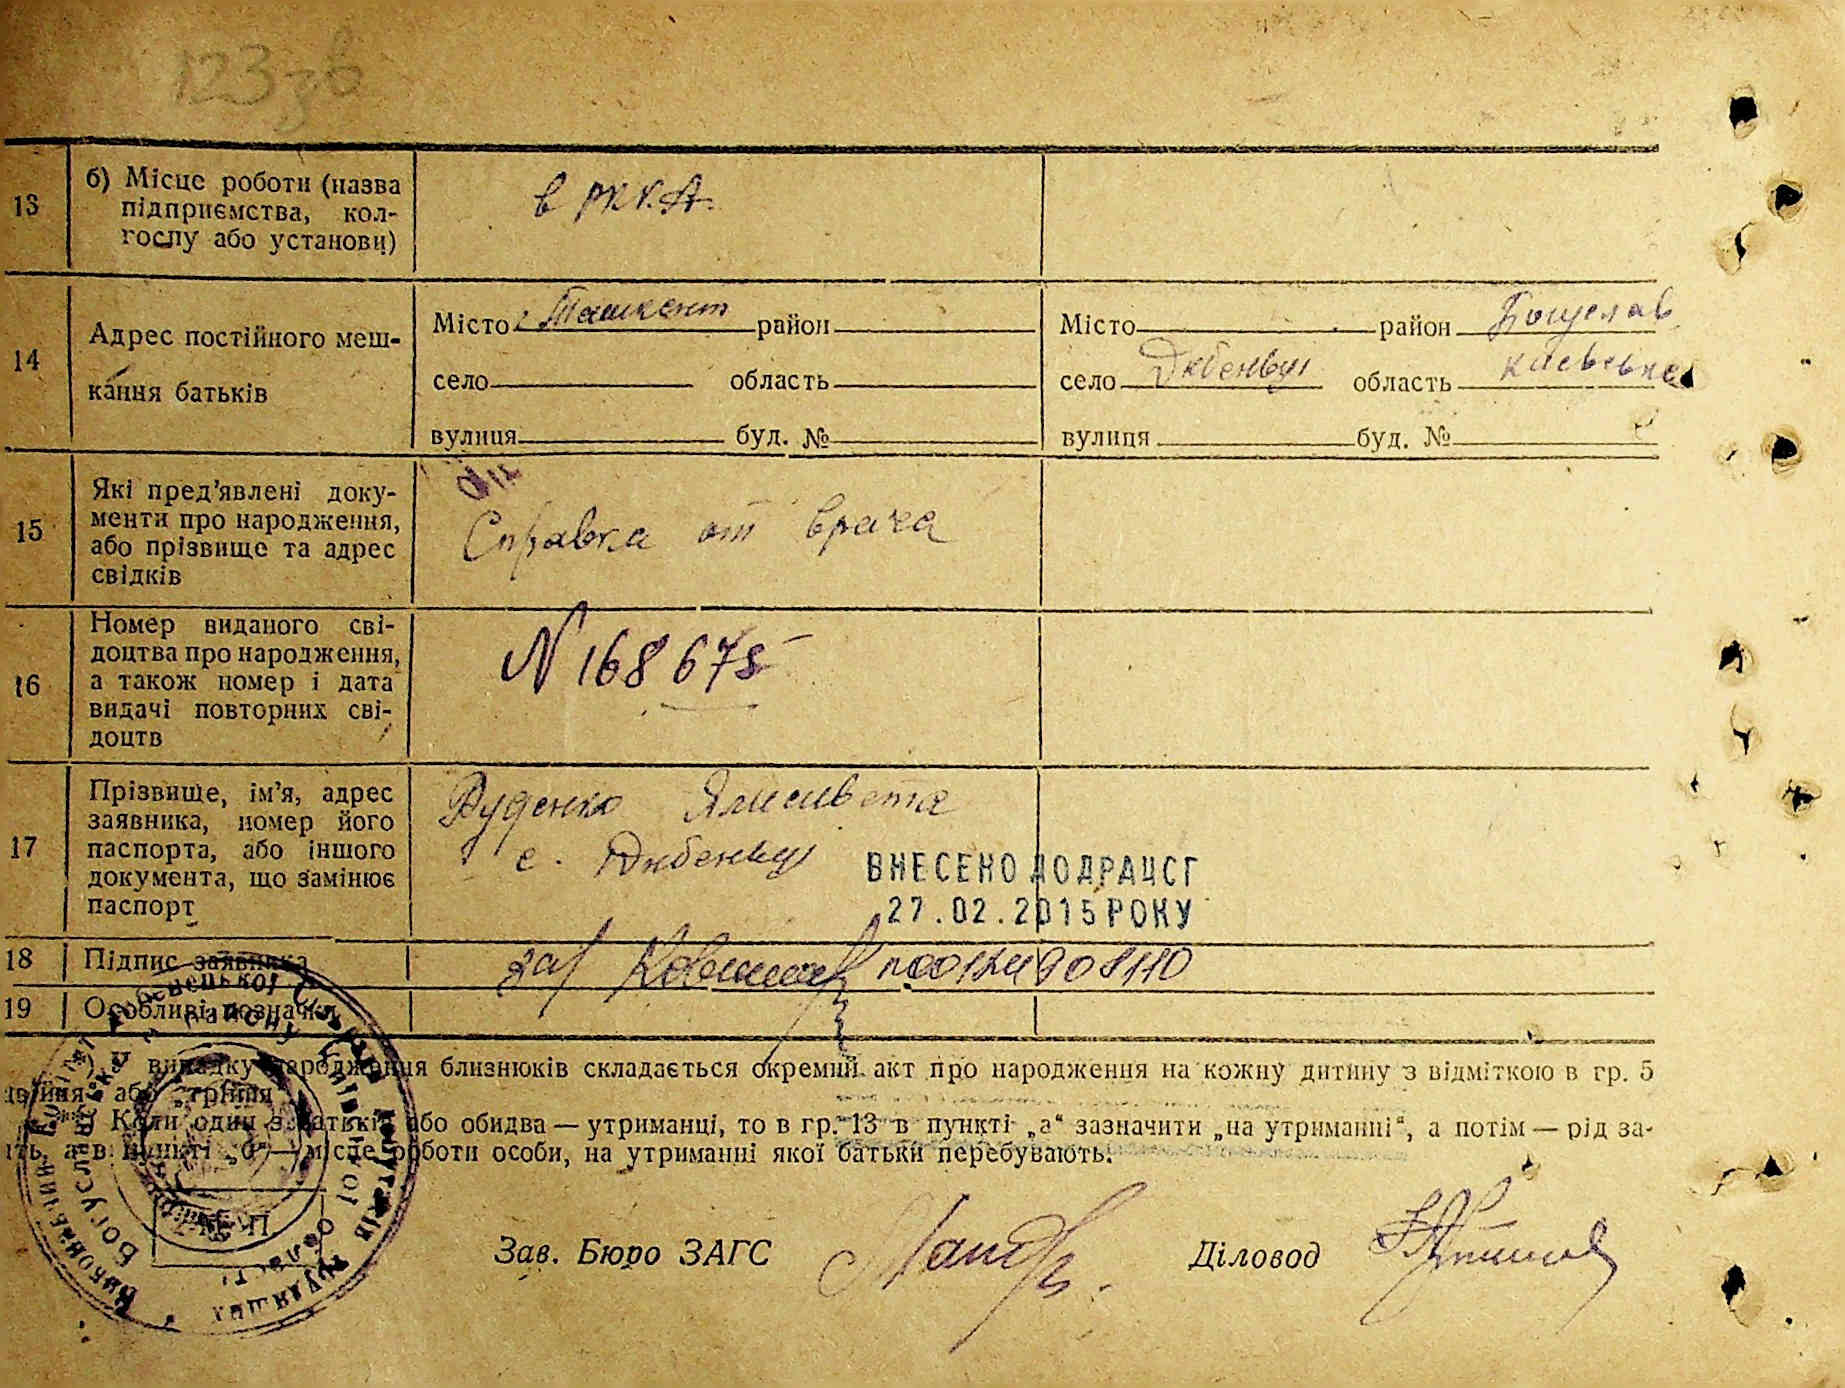 123зв
13
б) Місце роботи (назва
підприємства, кол-
госпу або установи)
в РККА
14
Адрес постійного меш-
кання батьків
Місто г. Ташкент район
село область
вулиця буд. №
Місто район Богуслав
село Дибенці область Київська
вулиця буд. №
15
Які пред'явлені доку-
менти про народження,
або прізвище та адрес
свідків
Справка от врача
16
Номер виданого сві-
доцтва про народження,
а також номер і дата
видачі повторних сві-
доцтв
N 168675
17
Прізвище, ім'я, адрес
заявника, номер його
паспорта, або іншого
документа, що замінює
паспорт
Руденко Ялисивета
с. Дибенці
ВНЕСЕНО ДО ДРАЦСГ
27.02.2015 РОКУ
18
Підпис заявника
за/
00124908110
19
Особливі позначки
*) У випадку народження близнюків складається окремий акт про народження на кожну дитину з відміткою в гр. 5
двійня або трійня
**) Коли один з батьків або обидва — утриманці, то в гр. 13 в пункті „а“ зазначити „на утриманні“, а потім — рід за-
ять, а в пункті „б“ — місце роботи особи, на утриманні якої батьки перебувають.
Зав. Бюро ЗАГС
Діловод
Виконавчий комітет Дибенецької сільської Ради депутатів трудящих
Богуславського району Київської області